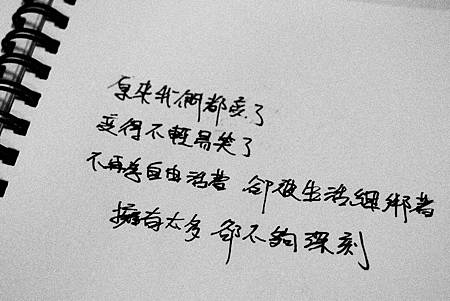 原來我們都變了
變得不輕易笑了
不再為自由活著 卻被生活綑綁著
擁有太多 卻不夠深刻